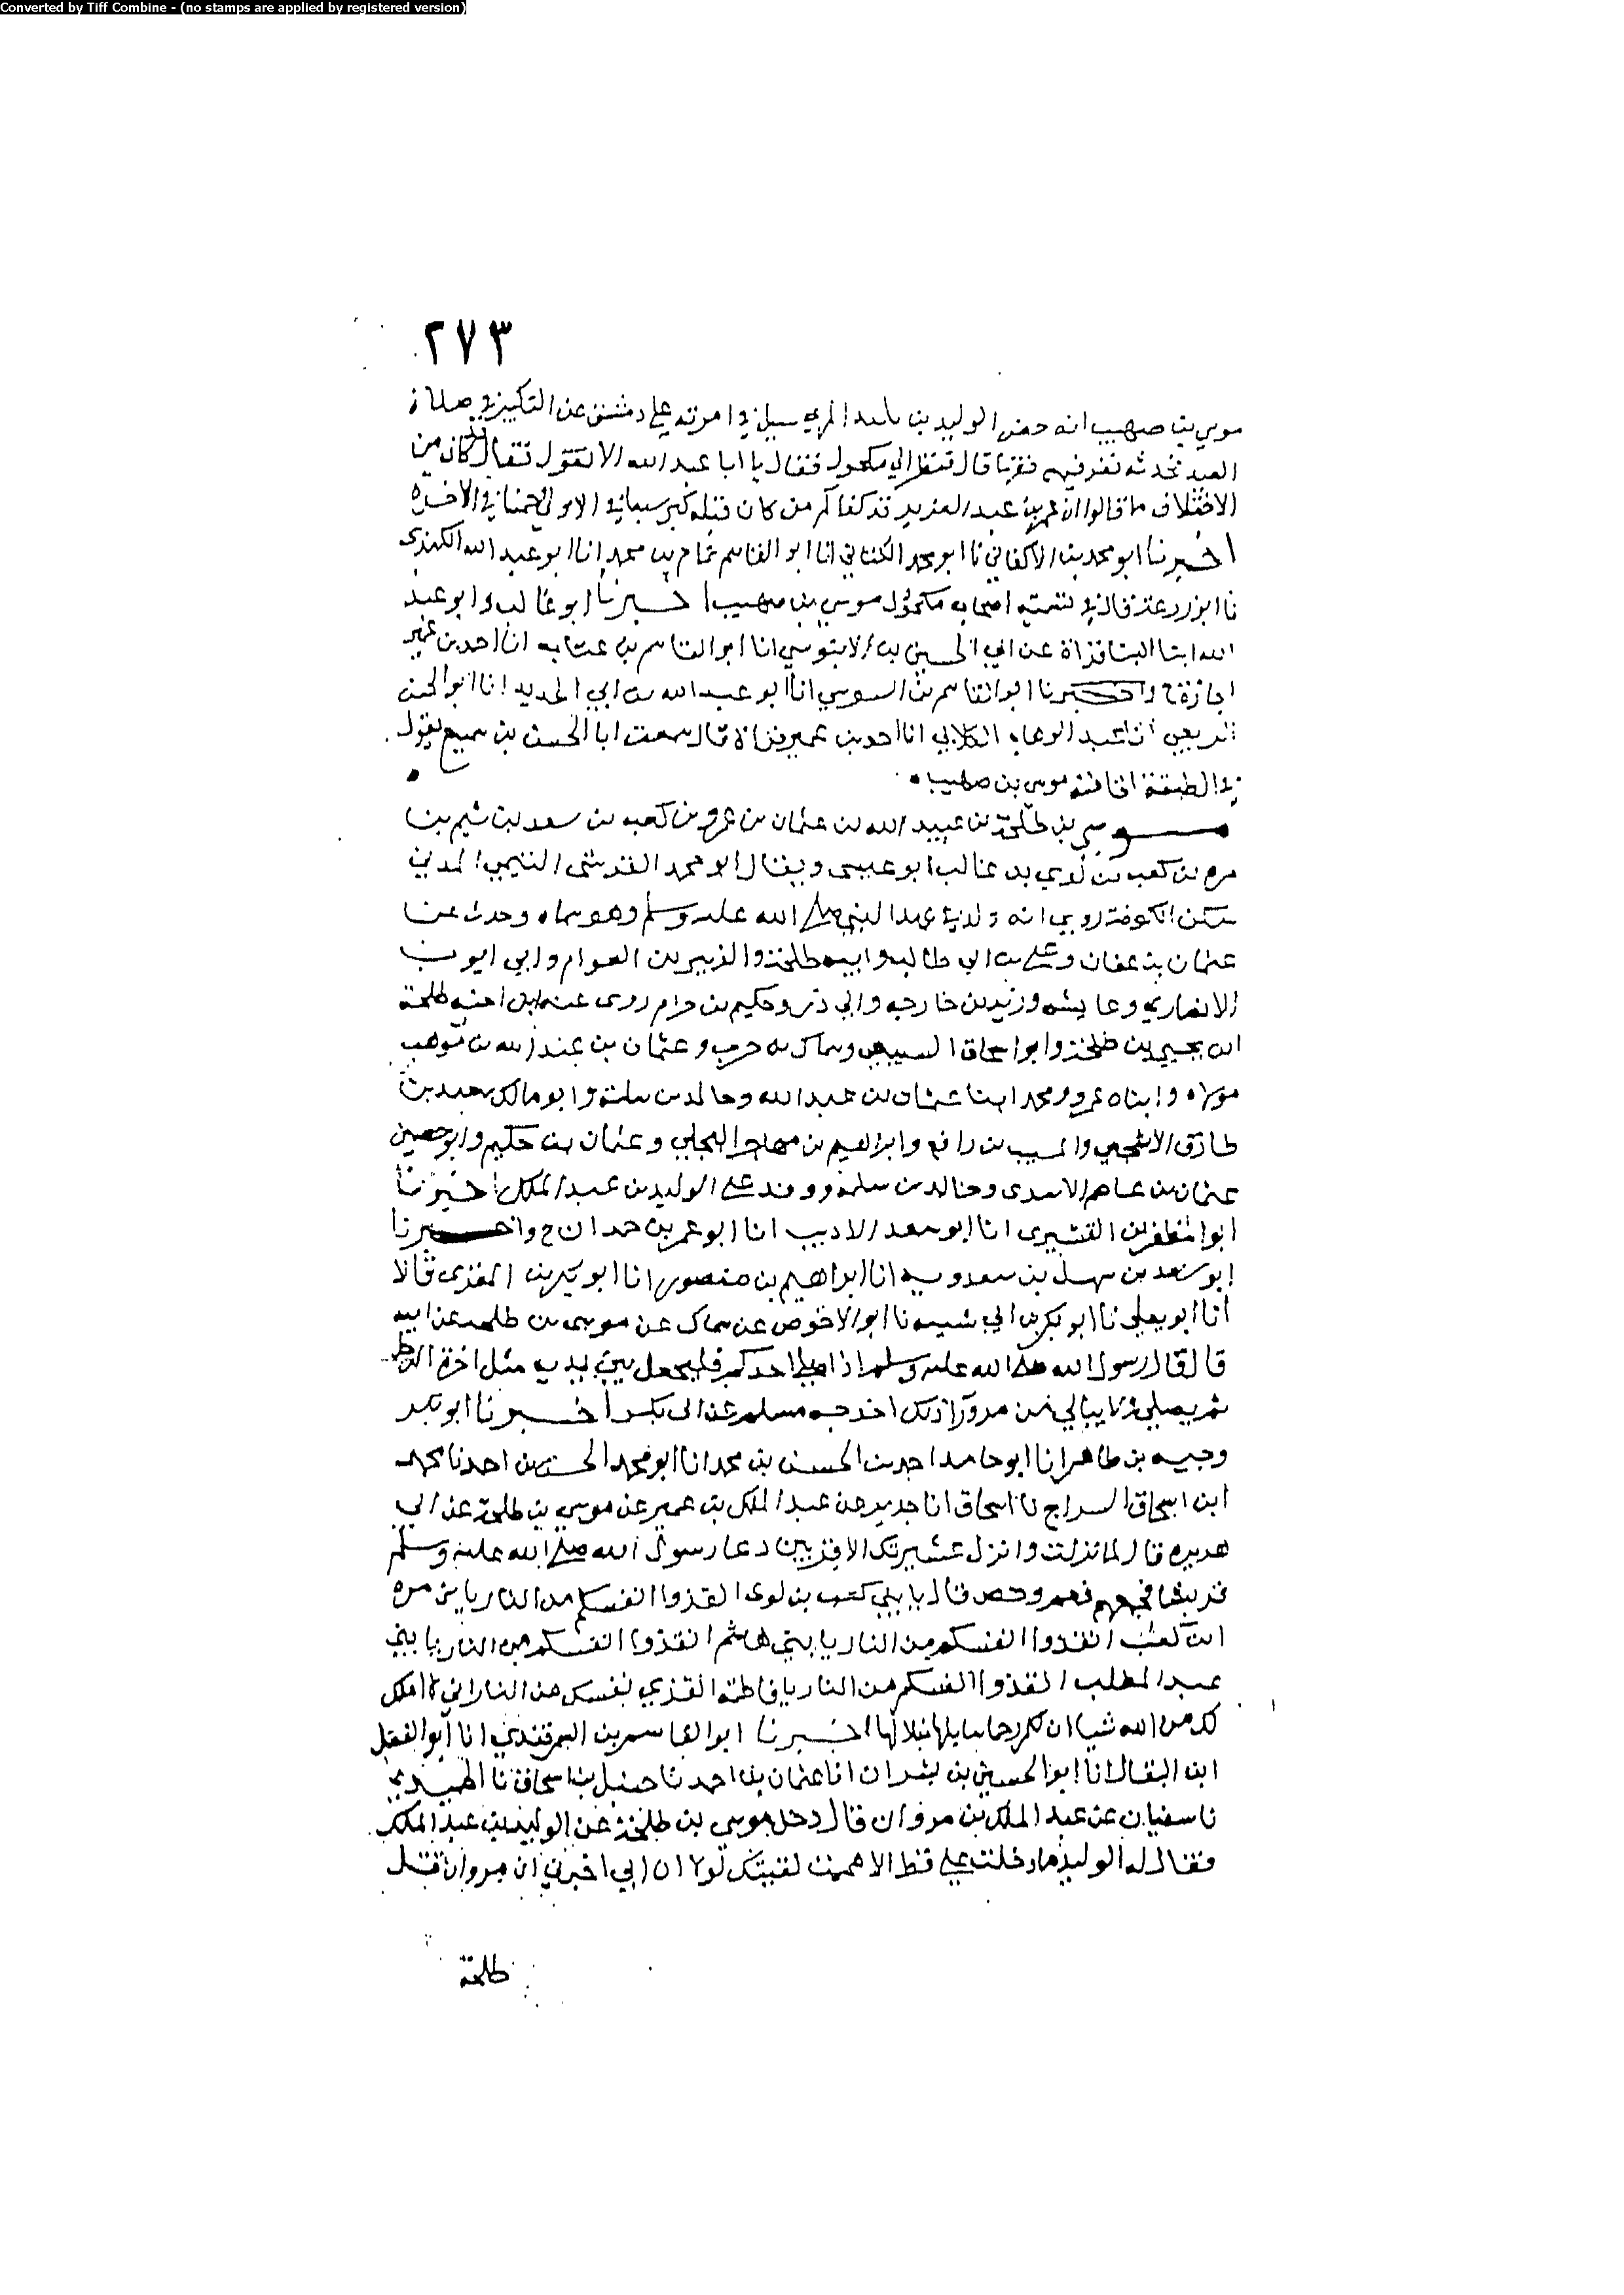 Converted by Tiff Combine - (no stamps are applied by registered version)
٢٧٣
موسي بن صهيب انه حضر الوليد بن المري سيل في امرته علي دمشق عن التكبير في صلاة
العيد فحدثه نفر فيهم قال فنظر الي مكحول فقال يا ابا عبد الله الا تقول فقال كان من
الاختلاف ما قالوا ان عمر بن عبد العزيز قد كفاكم من كان قبله كبر سبعا في الاولي وخمسا في الاخرة
اخبرنا ابو محمد بن الاكفاني نا ابو محمد الكتاني انا ابو القاسم تمام بن محمد انا ابو عبد الله الكندي
نا ابو زرعة قال في تسمية اصحاب مكحول موسي بن صهيب اخبرنا ابو غالب وابو عبد
الله ابنا البنا قراة عن ابي الحسين بن الابنوسي انا ابو القاسم بن عتاب انا احمد بن عمير
اجازة ح واخبرنا ابو القاسم بن السوسي انا ابو عبد الله بن ابي الحديد انا ابو الحسن
الربعي انا عبد الوهاب الكلابي انا احمد بن عمير قراة قال سمعت ابا الحسن بن سميع يقول
في الطبقة موسي بن صهيب
موسي بن طلحة بن عبيد الله بن عثمان بن عمرو بن كعب بن سعد بن تيم بن
مرة بن كعب بن لوي بن غالب ابو عيسى ويقال ابو محمد القرشي التيمي المدني
سكن الكوفة روي انه ولد في عهد النبي صلى الله عليه وسلم وهو سماه وحدث عن
عثمان بن عفان وعلي بن ابي طالب وابيه طلحة والزبير بن العوام وابي ايوب
الانصاري وعايشه وزيد بن خارجه وابي ذر وحكيم بن حزام روى عنه ابن اخيه طلحة
ابن يحيي بن طلحة وابو اسحاق السبيعي وسماك بن حرب وعثمان بن عبد الله بن موهب
مولاه وابناه عمرو ومحمد ابنا عثمان بن عبد الله وخالد بن سلمة وابو مالك سعد بن
طارق الاشجعي والمسيب بن رافع وابراهيم بن مهاجر البجلي وعثمان بن حكيم وابو حصين
عثمان بن عاصم الاسدي وخالد بن سلمة ووفد على الوليد بن عبد الملك اخبرنا
ابو المظفر بن القشيري انا ابو سعد الاديب انا ابو عمر بن حمدان ح واخبرنا
ابو سعد بن سهل بن سعدويه انا ابراهيم بن منصور انا ابو بكر بن المقري قالا
انا ابو يعلي نا ابو بكر بن ابي شيبه نا ابو الاحوص عن سماك عن موسى بن طلحة عن ابيه
قال قال رسول الله صلى الله عليه وسلم اذا صلى احدكم فليجعل بين يديه مثل اخرة الرحل
ثم يصلي ولا يبالي من مر ورا ذلك اخرجه مسلم عن ابي بكر اخبرنا ابو بكر
وجيه بن طاهر انا ابو حامد احمد بن الحسن بن محمد انا ابو محمد الحسن بن احمد نا محمد
ابن اسحاق السراج نا اسحاق انا جرير عن عبد الملك بن عمير عن موسي بن طلحة عن ابي
هريره قال لما نزلت وانذر عشيرتك الاقربين دعا رسول الله صلى الله عليه وسلم
قريشا فجمعهم فعم وخص قال يا بني كعب بن لوى انقذوا انفسكم من النار يا بني مره
ابن كعب انقذوا انفسكم من النار يا بني هاشم انقذوا انفسكم من النار يا بني
عبد المطلب انقذوا انفسكم من النار يا فاطمة انقذي نفسك من النار اني لا املك
لك من الله شيا ان لكم رحما سابلها ببلالها اخبرنا ابو القاسم بن السمرقندي انا ابو الفضل
ابن البقال انا ابو الحسين بن بشران انا عثمان بن احمد نا حنبل بن اسحاق نا الحميدي
نا سفيان عن عبد الملك بن مروان قال دخل موسى بن طلحة عن الوليد بن عبد الملك
فقال له الوليد ما دخلت علي قط الا هممت لولا ان ابي اخبرني ان مروان قتل
طلحة